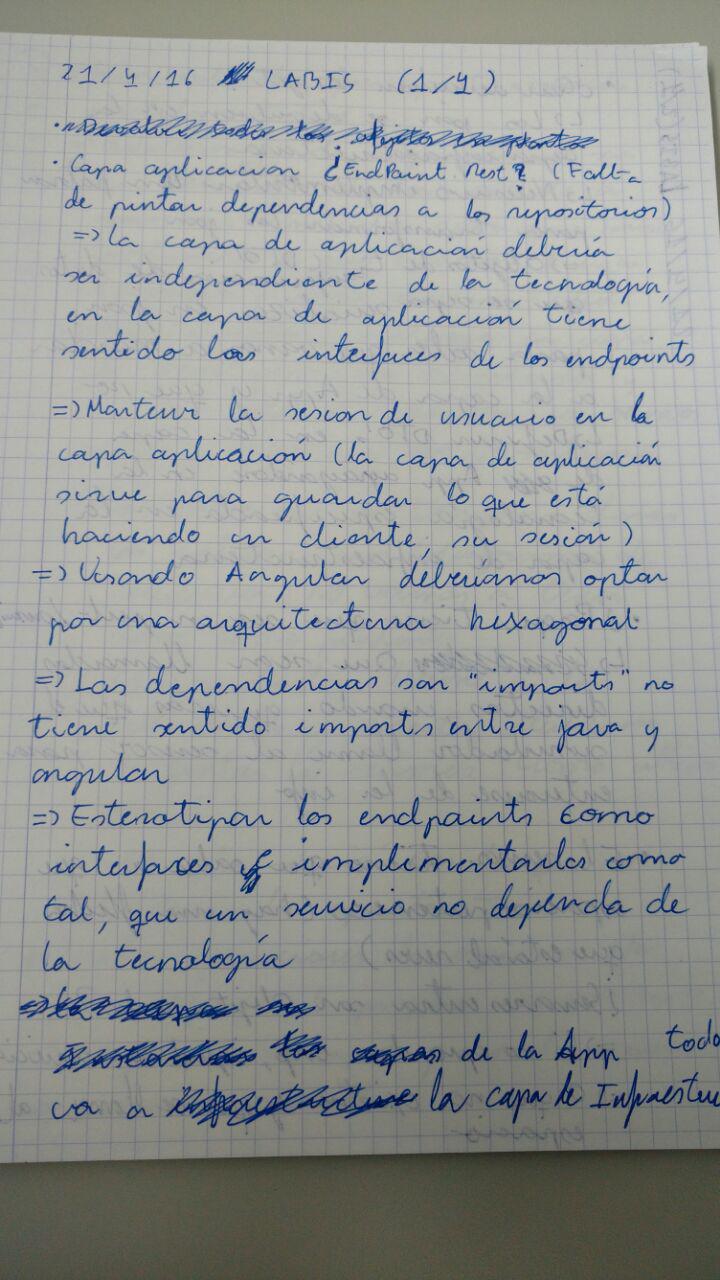 21/4/16 LABIS (1/4)
· Capa aplicacion ¿EndPoint Rest? (Falta
de pintar dependencias a los repositorios)
=> La capa de aplicación debería
ser independiente de la tecnología,
en la capa de aplicación tiene
sentido los interfaces de los endpoints
=> Mantener la sesion de usuario en la
capa aplicación (la capa de aplicación
sirve para guardar lo que está
haciendo un cliente, su sesión)
=> Usando Angular deberíamos optar
por una arquitectura hexagonal.
=> Las dependencias son "imports" no
tiene sentido imports entre java y
angular
=> Estereotipar los endpoints como
interfaces e implementarlos como
tal, que un servicio no dependa de
la tecnología
de la App todo
va a la capa de Infraestruc